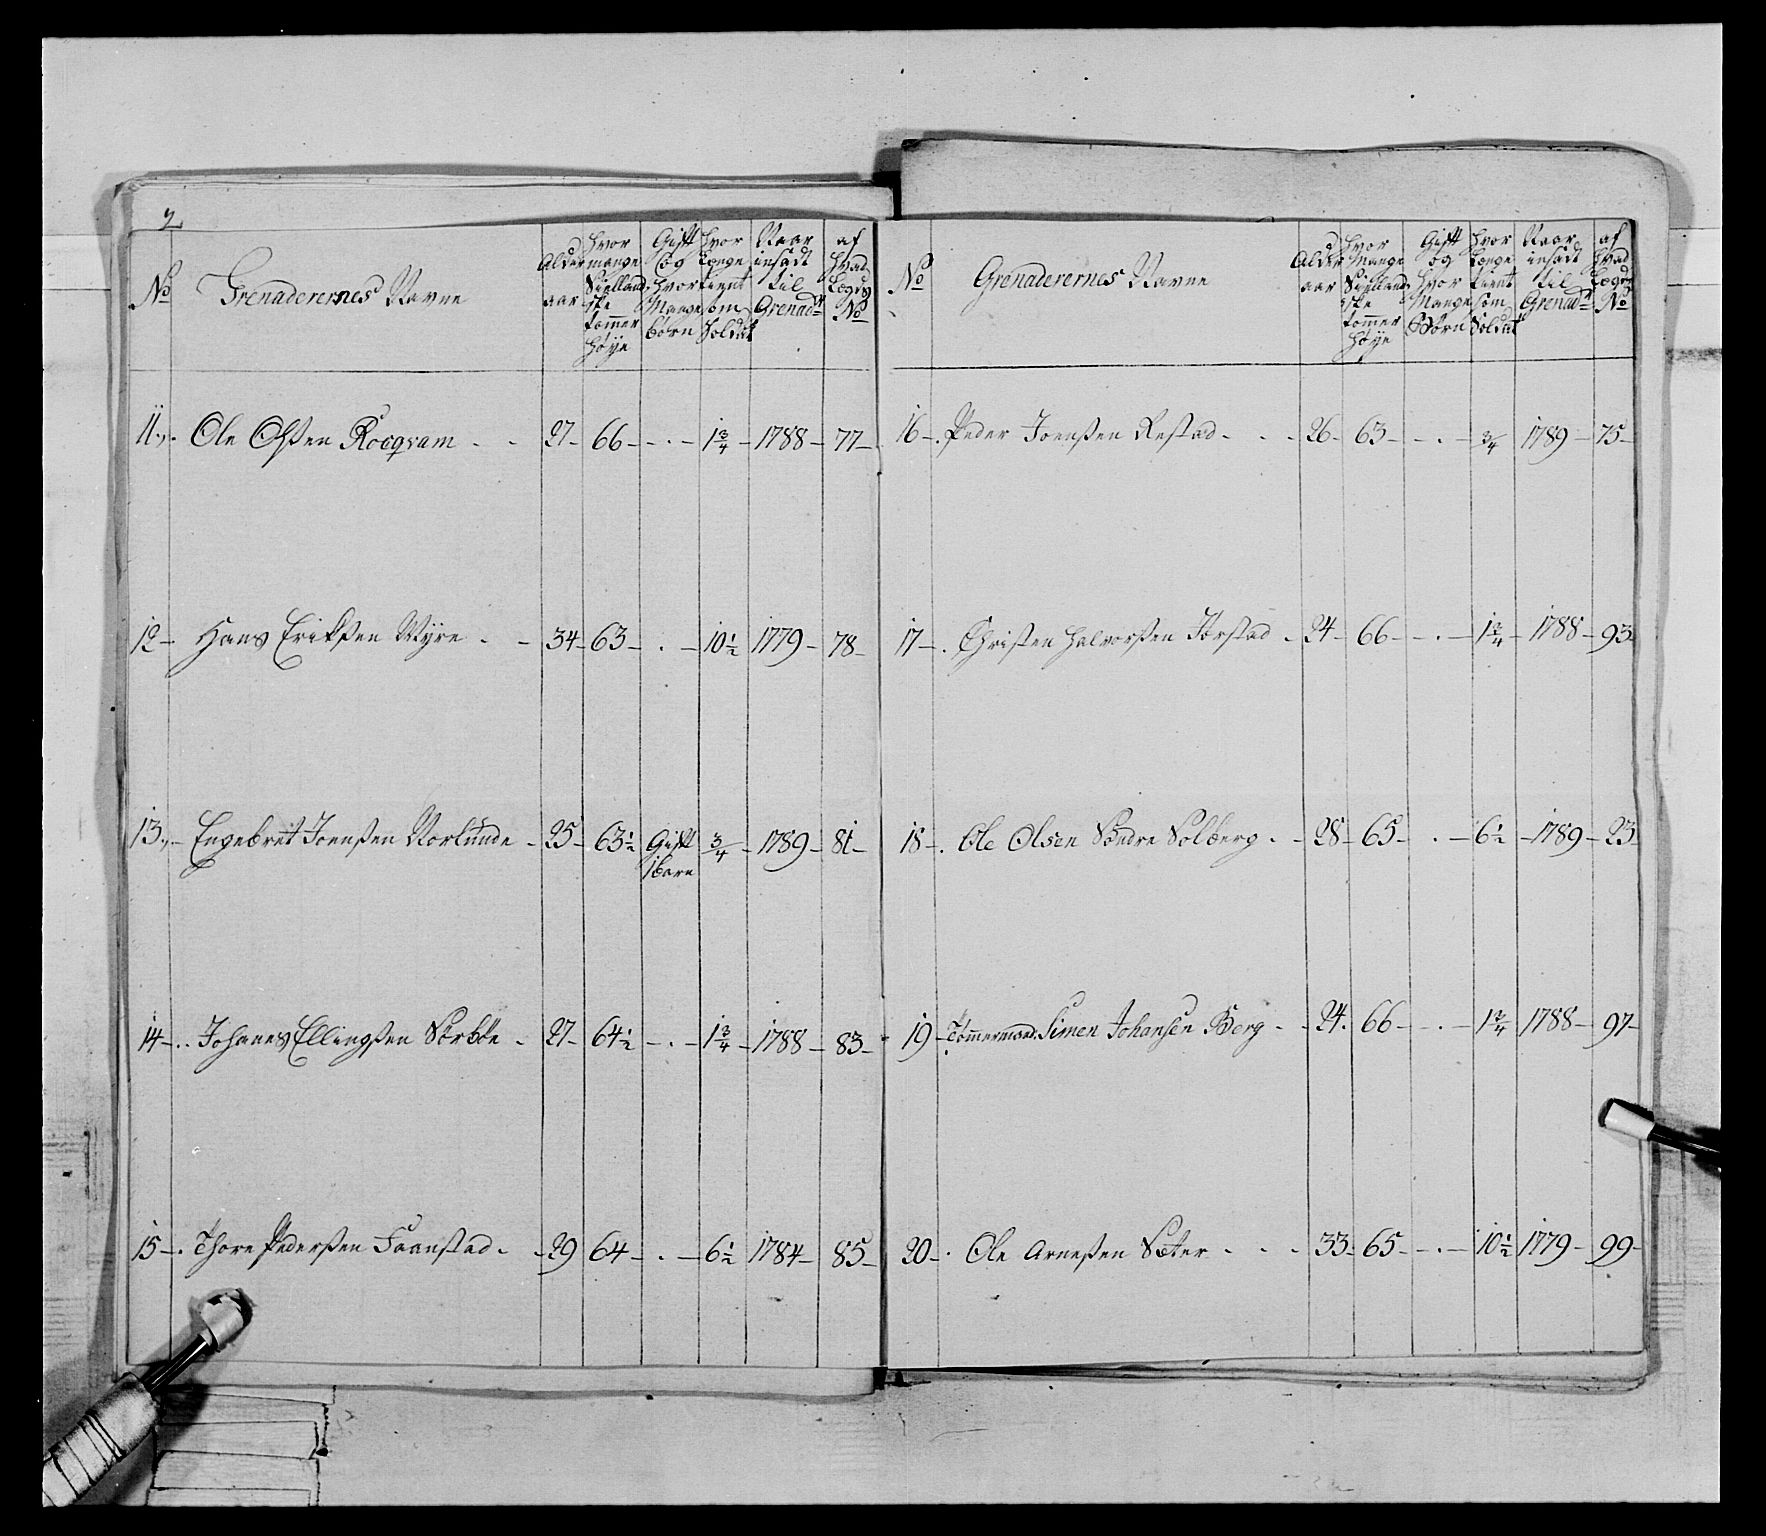 2
No Grenaderernes Navne Alder aar hvor mange Siellandske tommer høÿe Gift og hvor Mange børn hvor længe tient som Soldat Naar indsadt til Grenadr af hvad Lægds No
11.,. Ole Olsen Rocqvam - - 27- 66- - . - 1 3/4 - 1788- 77-
12- Hans Eriksen Myre - - 34- 63- . - 10 1/2 1779- 78-
13.,- Engebret Joensen Norlunde - 25- 63 1/2 Gift 1 barn 3/4 - 1789- 81-
14-.. Johanes Ellingsen Sörböe - 27- 64 1/2 - . - 1 3/4 - 1788- 83-
15-. Thore Pedersen Faanstad - - 29 64- . - 6 1/2 1784- 85-
No Grenaderernes Navne Alder aar hvor Mange Siellandske tommer høÿe Gift og hvor Mange Børn hvor længe tient som Soldat Naar indsadt til Grenadr af hvad Lægds No
16-. Peder Joensen Restad - - - 26- 63- - . - 3/4 1789- 75-
17-. Christen Halvorsen Jorstad - 24- 66- - . - 1 3/4 - 1788- 93-
18-. Ole Olsen Søndre Solberg - - 28- 65- . - 6 1/2 - 1789- 23-
19- Tømmermand. Simen Johansen Berg - - 24. 66- - . - 1 3/4 1788- 97-
20-. Ole Arnesen Sæter - - - 33- 65- - . - 10 1/2 1779- 99-